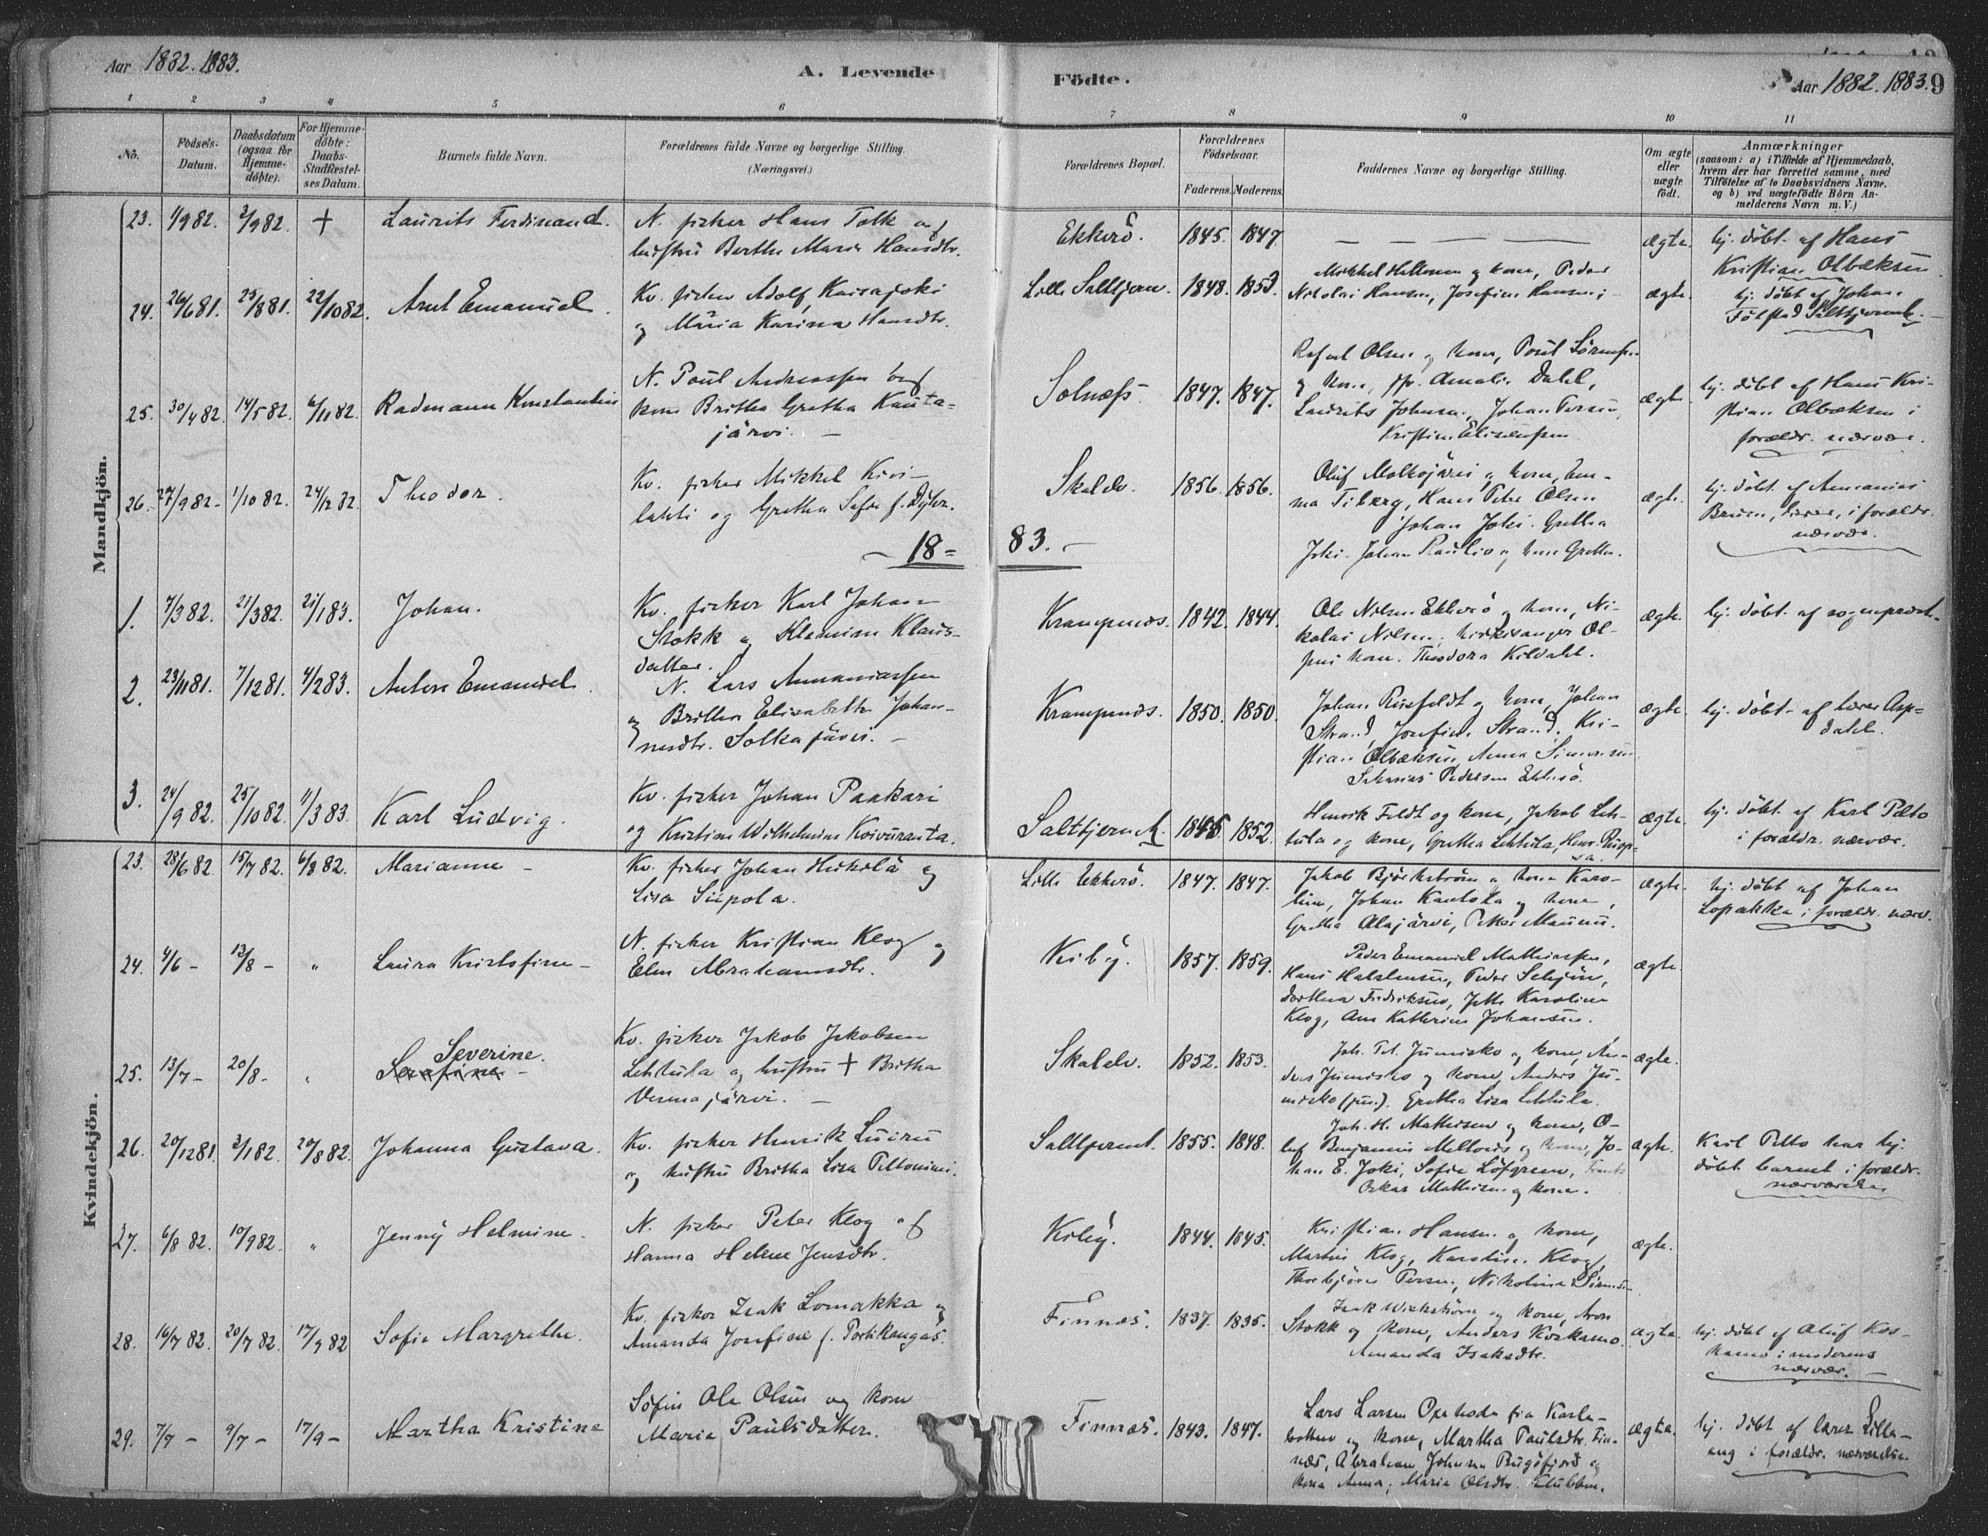 Aar 1882. 1883.
A. Levende
Födte.
Aar 1882. 1883. 9
1 2 3 4 5 6 7 8 9 10 11
No.
Födsels-
Datum.
Daabsdatum
(ogsaa for
Hjemme-
döbte).
For Hjemme-
döbte:
Daabs-
Stadfæstel-
ses Datum.
Barnets fulde Navn.
Forældrenes fulde Navne og borgerlige Stilling.
(Næringsvei.)
Forældrenes Bopæl.
Forældrenes
Födselsaar.
Faderens. Moderens.
Faddernes Navne og borgerlige Stilling.
Om ægte
eller
uægte
födt.
Anmærkninger
(saasom: a) i Tilfælde af Hjemmedaab,
hvem der har forrettet samme, med
Tilföielse af to Daabsvidners Navne,
og b) ved uægtefödte Börn An-
melderens Navn m. V.)
Mandkjön.
23. 1/9 82. 3/9 82. + Laurits Ferdinand.
N. fisker Hans Falk og
hustru Berthe Marie Hansdtr.
Ekkerö. 1845. 1847. — — — — ægte.
hj. döbt af Hans
Kristian Olbæksen
24. 26/6 81. 25/8 81. 22/10 82. Arnt Emanuel.
Kv. fisker Adolf Kaisajoki
og Maria Karina Hansdtr.
Lille Saltfjern. 1848. 1853.
Nikolai Hansen, Josefine Hansen;
ægte.
hj. döbt af Johan
25. 30/4 82. 14/5 82. 6/11 82. Radmann Konstantin
N. Poul Andreassen og
kone Britha Gretha Kauta-
järvi. —
Solnæss. 1847. 1847.
Rafael Olsen og kone, Poul Sörensen
og kone, Amalie Dahl,
Laurits Johnsen, Johan Persen
ægte.
hj. döbt af Hans Kri-
stian Olbæksen i
forældr. nærvær.
26. 27/9 82. 1/10 82. 24/12 82 Theodor.
Kv. fisker Mikkel Kivi-
lahti og Gretha Sofie f.
Skalelv. 1856. 1856.
Hans Peter Olsen
Johan Joki. Gretha
Joki. Johan Raulio og kone Grethe.
ægte.
hj. döbt af Annanias
Bruun, lærer, i forældr.
nærvær.
— 18 = 83. —
1. 7/3 82. 21/3 82. 21/1 83. Johan.
Kv. fisker Karl Johan
Stokk og Klemine Klaus-
datter.
Krampenæs. 1842. 1844.
Ole Nilsen Ekkerö og kone, Ni-
kolai Nilsen, kirkesanger Ol-
sens kone. Theodora Kildahl.
ægte. hj. döbt af sogneprest.
2. 23/11 81. 7/12 81. 4/2 83. Anton Emanuel.
N. Lars Annaniassen
og Britha Elisabeth Johan-
nesdtr. Solkajärvi. —
Krampenæs. 1850. 1850.
Johan Rosfeldt og kone, Johan
Strand, Josefine Strand. Kri-
stian Olbæksen, Anna Simonsen
Pedersen Ekkerö
ægte. hj. döbt af lærer Asp-
dahl.
3. 24/9 82. 25/10 82. 11/3 83. Karl Ludvig.
Kv. fisker Johan Paakari
og Kristine Wilhelmine Koivuranta.
Saltfjern. 1845 1852.
Henrik Feldt og kone, Jakob Leh-
tula og kone, Gretha Lehtula,
ægte. hj. döbt af Karl Pelto
i forældr. nærvær.
Kvindekjön.
23. 28/6 82 15/7 82. 6/8 82. Marianne —
Kv. fisker Johan Heikola og
Lisa Siipola.
Lille Ekkerö. 1847. 1847.
Jakob Björkström og kone Karo-
line, Johan Kantola og kone,
Gretha Alajärvi, Peter Maunu.
ægte. hj. döbt af Johan
Lopakka i forældr. nærv.
24. 4/6 — 13/8 — " Laura Kristofine —
N. fisker Kristian Klog og
Elen Abrahamsdtr.
Kiby. 1857. 1859.
Peder Emanuel Mathiassen,
Hans Halstensen, Peder Schjön,
Dorthea Fredriksen, Jette Karoline
Klog, Ane Kathrine Johansen.
ægte.
25. 13/7 — 20/8 — " Severine.
Serafine —
Kv. fisker Jakob Jakobsen
Lehtula og hustru + Britha
Venmajärvi. —
Skalelv. 1852. 1853.
Joh. Pet. Jumisko og kone, An-
ders Jumisko og kone, Anders Ju-
misko (jun.). Gretha Lisa Lehtula.
ægte.
26. 20/12 81. 2/1 82. 20/8 82. Johanna Gustava.
Kv. fisker Henrik Luiru
og hustru Britha Lisa Peltoniemi.
Saltfjern. 1855. 1848.
Joh. H. Mathisen og kone, O-
luf Benjamin Meltonis og kone, Jo-
han E. Joki, Sofie Löfgren,
Oskar Mathisen og kone.
ægte.
Karl Pelto har hj.
döbt barnet i forældr.
nærværelse
27. 6/8 82. 10/9 82. " Jenny Helmine.
N. fisker Peter Klog og
Hanna Helene Jensdtr.
Kiby. 1844. 1845.
Kristian Hansen og kone,
Martin Klog, Karoline Klog,
Thorbjörn Persen, Nikoline
ægte.
28. 16/7 82. 20/7 82. 17/9 82 Sofie Margrethe.
Kv. fisker Isak Lomakka og
Amanda Josefine f. Portikangas.
Finnæs. 1837. 1835.
Isak Wickström og kone, Aron
Stokk og kone, Anders Koskamo
Amanda Isaksdtr.
ægte. hj. döbt af Oluf Kos-
kamo i moderens
nærvær. —
29. 7/7 — 9/7 — 17/9 — Martha Kristine
Söfin Ole Olsen og kone
Maria Paulsdatter.
Finnæs. 1843. 1847.
Lars Larsen Opehoda fra Karle-
botten og kone, Martha Paulsdtr. Fin-
næs, Abraham Johnsen Bugöfjord og
kone Anna, Maria Olsdtr. Klubben.
ægte. hj. döbt af lærer Lilla-
ang i forældr. nærværelse.